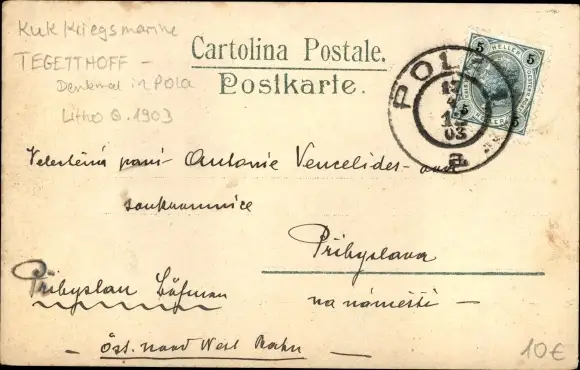 KuK Kriegsmarine
TEGETTHOFF -
Denkmal in POLA
Litho G. 1903
Cartolina Postale.
Postkarte.
5 HELLER 5
POLA
17
4
03
a
Velectěná paní Antonie Vencelides-
soukromnice
Přibyslava
na náměstí -
Přibyslau Böhmen
- Öst. nord West Bahn -
10€